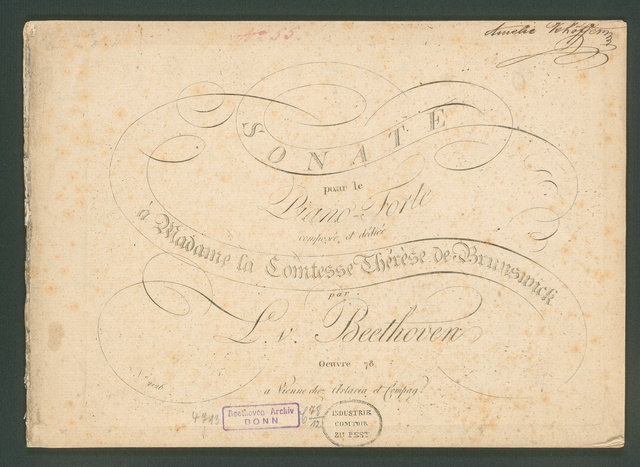 No 55.
Amelie
SONATE
pour le
Piano-Forte
composée, et dédiée
à Madame la Comtesse Thérèse de Brunswick
par
L. v. Beethoven
Oeuvre 78
a Vienne chez Artaria et Compag.
Beethoven-Archiv
BONN
78
12
INDUSTRIE
COMTOIR
ZU PEST